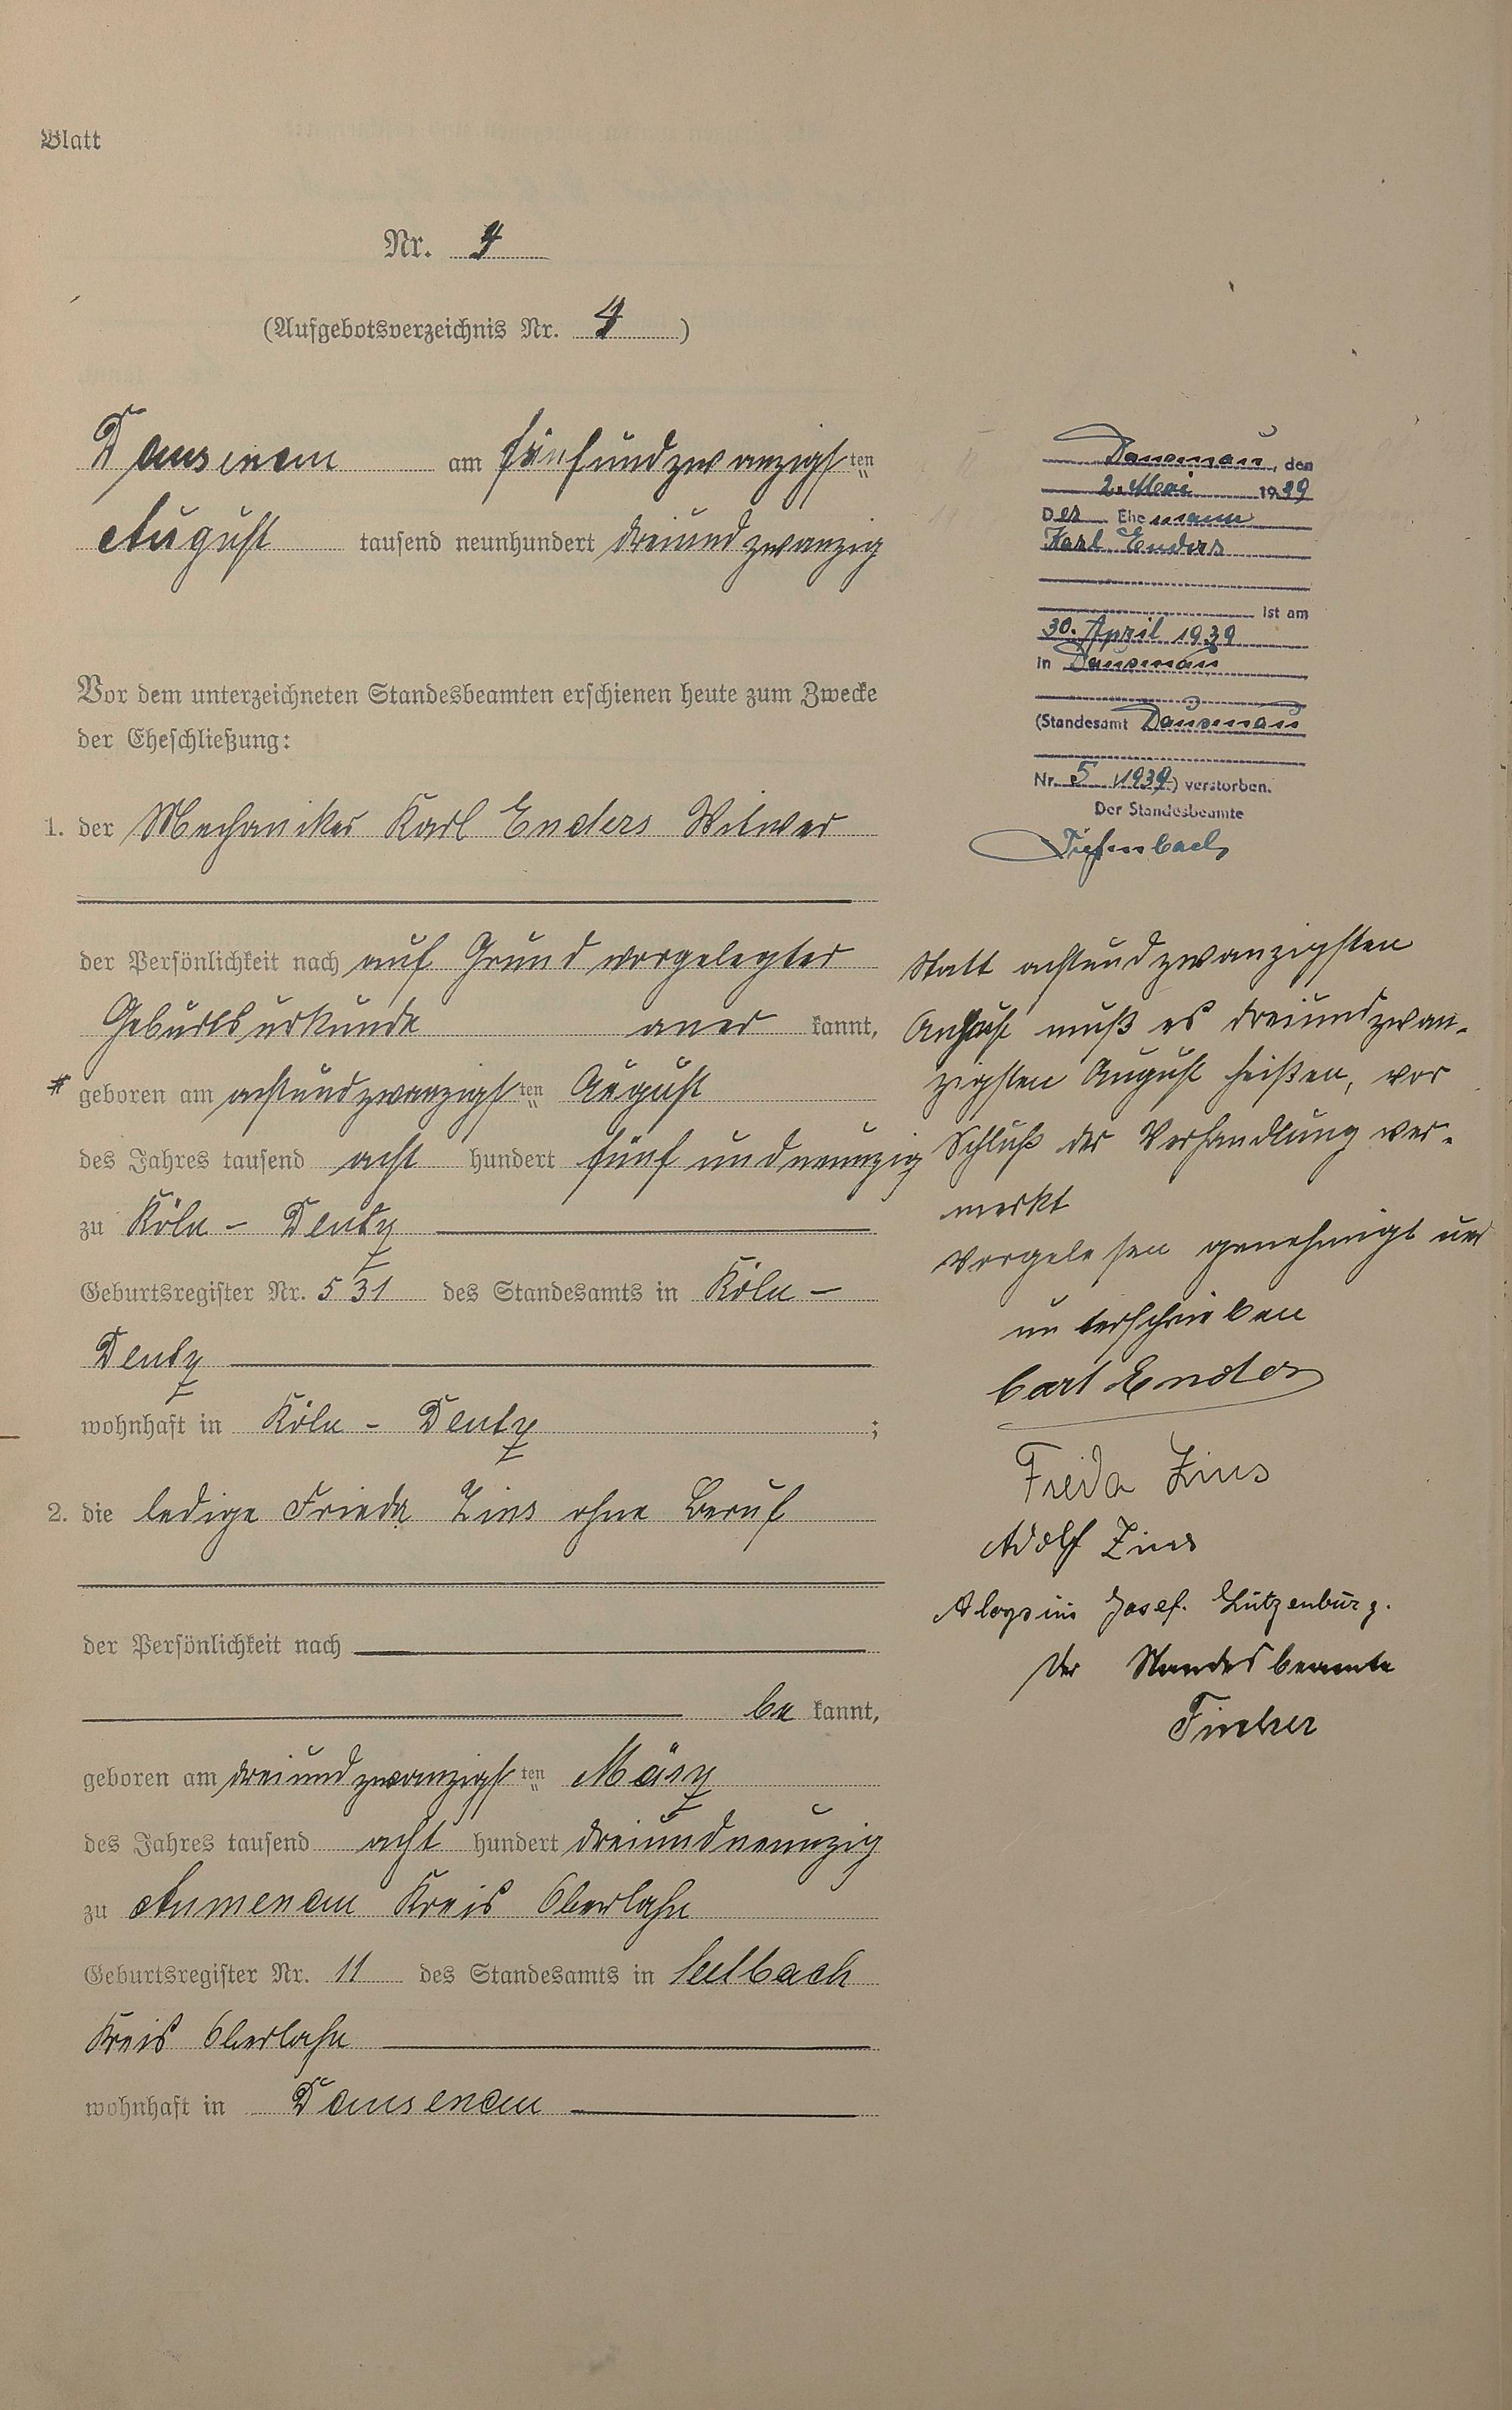 Blatt
Nr. 4
(Aufgebotsverzeichnis Nr. 4)
Dausenau am fünfundzwanzigsten
August tausend neunhundert dreiundzwanzig
Vor dem unterzeichneten Standesbeamten erschienen heute zum Zwecke
der Eheschließung:
1. der Mechaniker Karl Enders Witwer
der Persönlichkeit nach auf Grund vorgelegter
Geburtsurkunde aner kannt,
* geboren am achtundzwanzigsten August
des Jahres tausend acht hundert fünf und neunzig
zu Köln - Deutz
Geburtsregister Nr. 531 des Standesamts in Köln -
Deutz
wohnhaft in Köln - Deutz ;
2. die ledige Frieda Zins ohne Beruf
der Persönlichkeit nach
be kannt,
geboren am dreiundzwanzigsten März
des Jahres tausend acht hundert dreiundneunzig
zu Aumenau Kreis Oberlahn
Geburtsregister Nr. 11 des Standesamts in Seelbach
Kreis Oberlahn
wohnhaft in Dausenau
Dausenau, den
2. Mai 1939
Der Ehemann
Karl Enders
ist am
30. April 1939
in Dausenau
(Standesamt Dausenau
Nr. 5 /1939) verstorben.
Der Standesbeamte
Tiefenbach
Statt achtundzwanzigsten
August muß es dreiundzwan-
zigsten August heißen, vor
Schluß der Verhandlung ver-
merkt
Vorgelesen genehmigt und
unterschrieben
Carl Enders
Frieda Zins
Adolf Zins
Aloysius Josef Lützenburg.
Der Standesbeamte